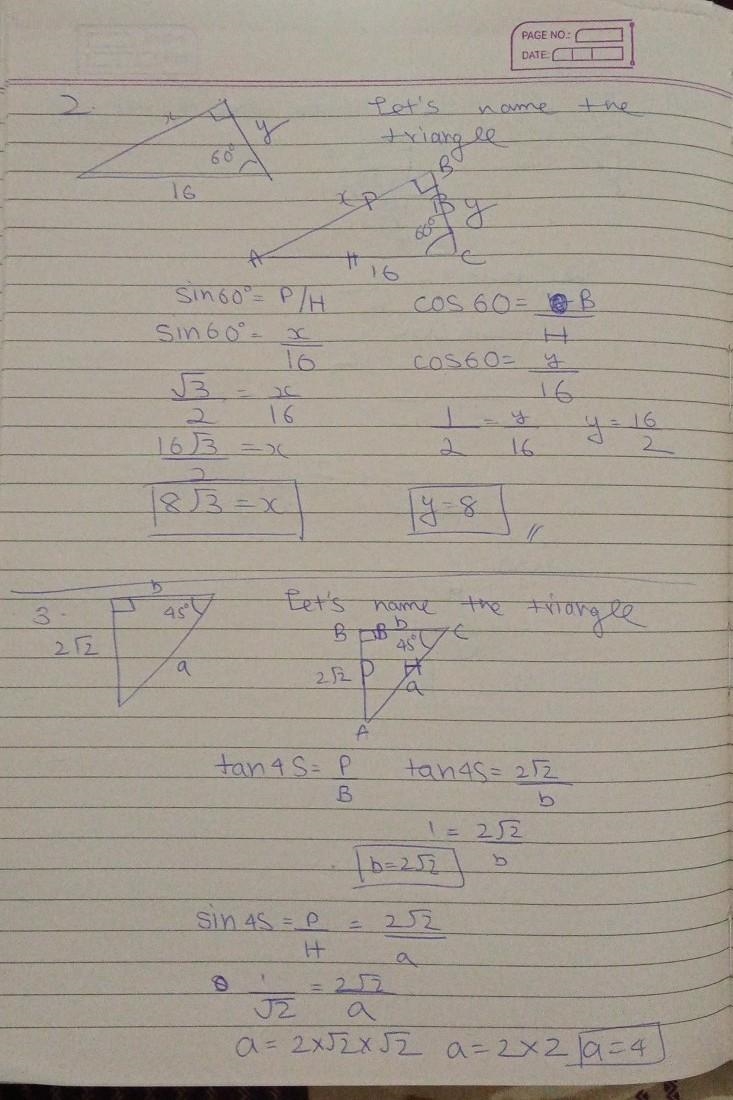 PAGE NO.:
DATE:
2.
x
y
60°
16
Let's name the
triangle
B
x P
B y
60°
A
H
C
16
sin60° = P/H
cos 60 = B/H
sin60° = x/16
cos60 = y/16
√3/2 = x/16
1/2 = y/16 y = 16/2
16√3/2 = x
8√3 = x
y = 8 //
3.
b
45°
2√2
a
Let's name the triangle
B B b C
45°
2√2 P H
a
A
tan45 = P/B tan45 = 2√2/b
1 = 2√2/b
b = 2√2
sin 45 = P/H = 2√2/a
1/√2 = 2√2/a
a = 2×√2×√2 a = 2×2 a = 4